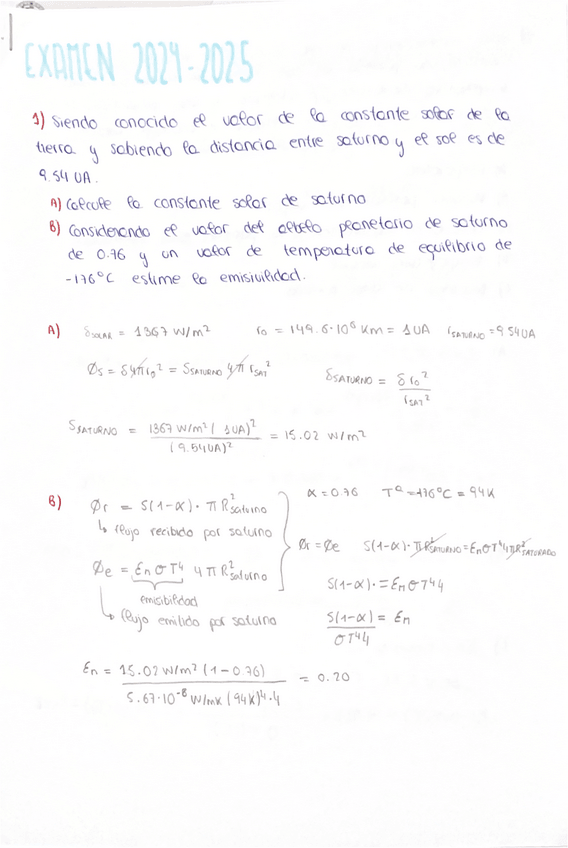 EXAMEN 2024-2025
1) Siendo conocido el valor de la constante solar de la
tierra y sabiendo la distancia entre saturno y el sol es de
9.54 UA.
A) Calcule la constante solar de saturno
B) Considerando el valor del albelo planetario de saturno
de 0.76 y un valor de temperatura de equilibrio de
-176°C estime la emisivilidad.
A) S_SOLAR = 1367 W/m² r₀ = 149.6·10⁶ Km = 1 UA r_SATURNO = 9.54 UA
Øs = S4πr₀² = S_SATURNO 4π r_SAT² S_SATURNO = S r₀² / r_SAT²
S_SATURNO = 1367 W/m² (1UA)² / (9.54UA)² = 15.02 W/m²
B) Ør = S(1-α)· πR²saturno α = 0.76 Tª = -176°C = 94K
↳ flujo recibido por saturno
Ør = Øe S(1-α)·πR²SATURNO = En σT⁴ 4πR²SATURADO
Øe = En σT⁴ 4πR²saturno
S(1-α)· = En σT⁴4
emisibilidad
↳ flujo emitido por saturno
S(1-α) / σT⁴4 = En
En = 15.02 W/m² (1-0.76) / 5.67·10⁻⁸ W/mK (94K)⁴·4 = 0.20